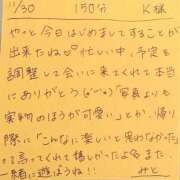 11/30 150分 K様
やっと今日はじめましてすることが
出来たね♡忙しい中、予定を
調整して会いに来てくれて本当に
ありがとう(*'ω'*)「写真よりも
実物のほうが可愛い」とか、帰り
際に「こんなに楽しいと思わなかった」
って言ってくれて嬉しかったよ♡また
一緒に遊ぼうね!! みと